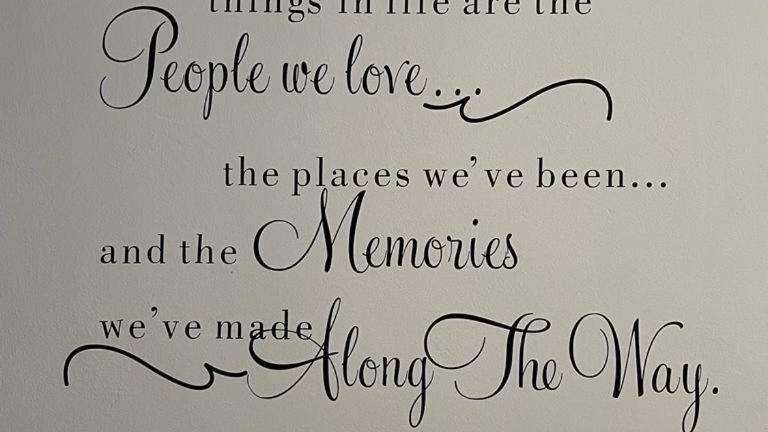 things in life are the
People we love...
the places we've been...
and the Memories
we've made Along The Way.